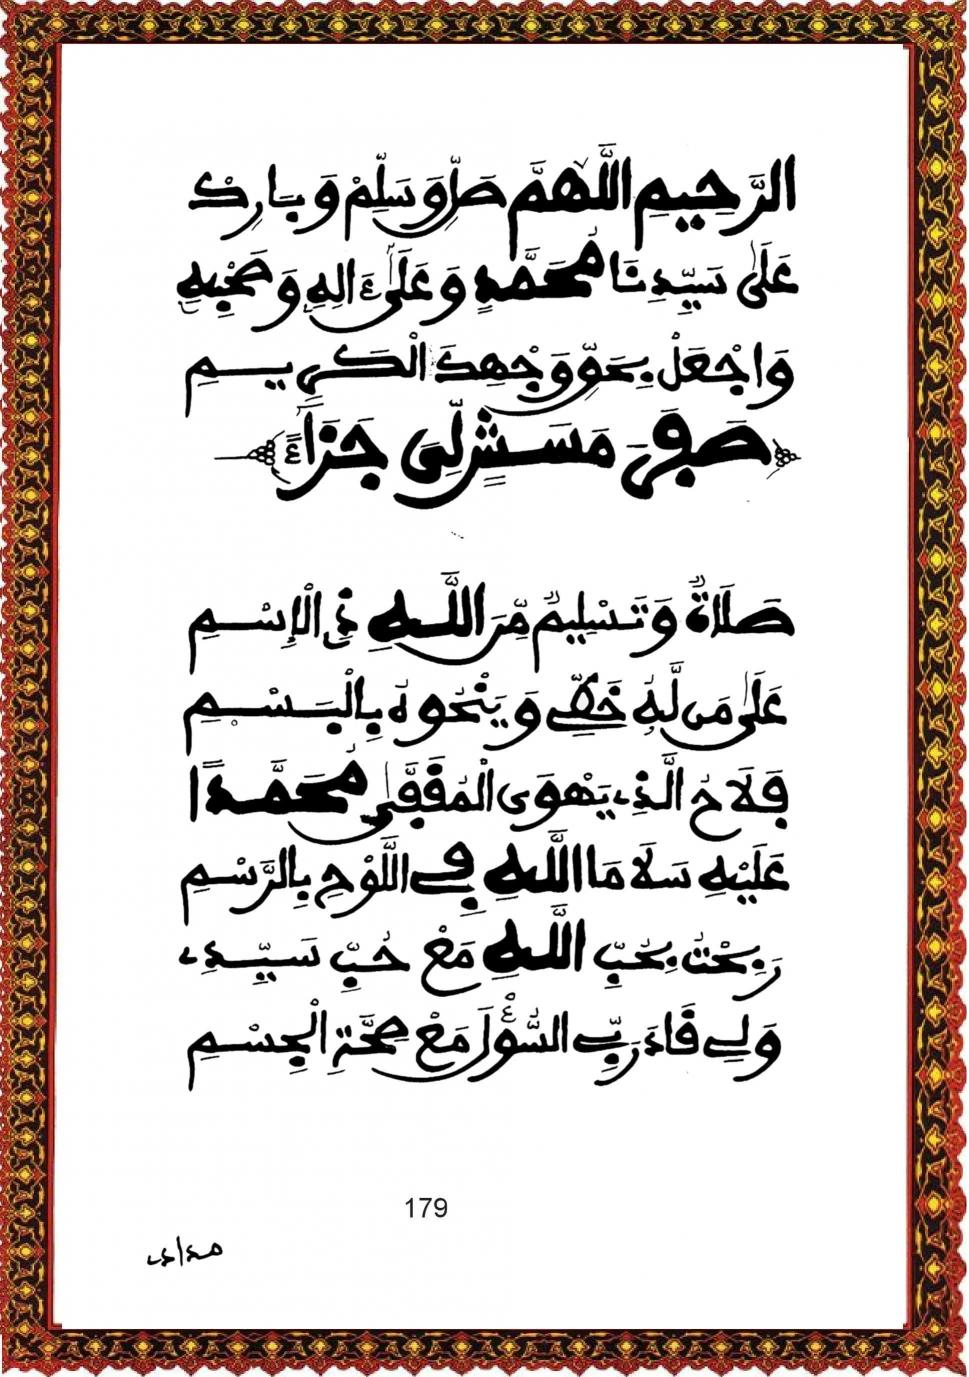 الرَّحِيمِ اللَّهُمَّ صَلِّ وَسَلِّمْ وَبَارِكْ
عَلَى سَيِّدِنَا مُحَمَّدٍ وَعَلَى ءَالِهِ وَصَحْبِهِ
وَاجْعَلْ بِحَقِّ وَجْهِكَ الْكَرِيمِ
صَفَرَ مَسَـشٍ لِّى جَزَاءً
صَلَاةٌ وَتَسْلِيمٌ مِّنَ اللَّهِ ذِي الْإِسْمِ
عَلَى مَن لَّهُ خَطِّي وَيَنْحُوهُ بِالْبَسْمِ
فَلَاحُ الَّذِي يَهْوَى الْمُقَفَّى مُحَمَّدًا
عَلَيْهِ سَلَامَا اللَّهِ فِي اللَّوْحِ بِالرَّسْمِ
رَبِحْتُ بِحُبِّ اللَّهِ مَعْ حُبِّ سَيِّدِي
وَلِي قَادَ رَبِّي السُّؤْلَ مَعْ صِحَّةِ الْجِسْمِ
179